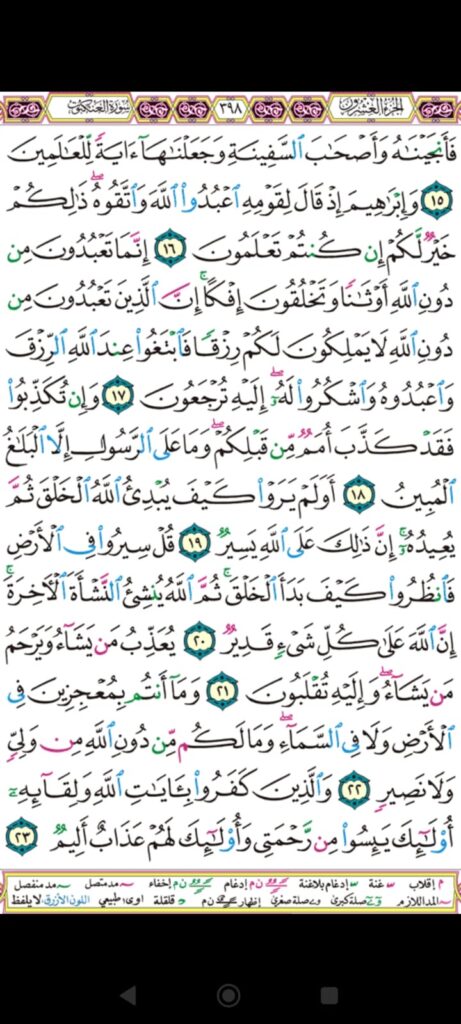 سورة العنكبوت ٣٩٨ الجزء العشرون
فَأَنجَيْنَٰهُ وَأَصْحَٰبَ ٱلسَّفِينَةِ وَجَعَلْنَٰهَآ ءَايَةً لِّلْعَٰلَمِينَ
١٥ وَإِبْرَٰهِيمَ إِذْ قَالَ لِقَوْمِهِ ٱعْبُدُوا۟ ٱللَّهَ وَٱتَّقُوهُ ۖ ذَٰلِكُمْ
خَيْرٌ لَّكُمْ إِن كُنتُمْ تَعْلَمُونَ ١٦ إِنَّمَا تَعْبُدُونَ مِن
دُونِ ٱللَّهِ أَوْثَٰنًا وَتَخْلُقُونَ إِفْكًا ۚ إِنَّ ٱلَّذِينَ تَعْبُدُونَ مِن
دُونِ ٱللَّهِ لَا يَمْلِكُونَ لَكُمْ رِزْقًا فَٱبْتَغُوا۟ عِندَ ٱللَّهِ ٱلرِّزْقَ
وَٱعْبُدُوهُ وَٱشْكُرُوا۟ لَهُۥٓ ۖ إِلَيْهِ تُرْجَعُونَ ١٧ وَإِن تُكَذِّبُوا۟
فَقَدْ كَذَّبَ أُمَمٌ مِّن قَبْلِكُمْ ۖ وَمَا عَلَى ٱلرَّسُولِ إِلَّا ٱلْبَلَٰغُ
ٱلْمُبِينُ ١٨ أَوَلَمْ يَرَوْا۟ كَيْفَ يُبْدِئُ ٱللَّهُ ٱلْخَلْقَ ثُمَّ
يُعِيدُهُۥٓ ۚ إِنَّ ذَٰلِكَ عَلَى ٱللَّهِ يَسِيرٌ ١٩ قُلْ سِيرُوا۟ فِى ٱلْأَرْضِ
فَٱنظُرُوا۟ كَيْفَ بَدَأَ ٱلْخَلْقَ ۚ ثُمَّ ٱللَّهُ يُنشِئُ ٱلنَّشْأَةَ ٱلْءَاخِرَةَ ۚ
إِنَّ ٱللَّهَ عَلَىٰ كُلِّ شَىْءٍ قَدِيرٌ ٢٠ يُعَذِّبُ مَن يَشَآءُ وَيَرْحَمُ
مَن يَشَآءُ ۖ وَإِلَيْهِ تُقْلَبُونَ ٢١ وَمَآ أَنتُم بِمُعْجِزِينَ فِى
ٱلْأَرْضِ وَلَا فِى ٱلسَّمَآءِ ۖ وَمَا لَكُم مِّن دُونِ ٱللَّهِ مِن وَلِىٍّ
وَلَا نَصِيرٍ ٢٢ وَٱلَّذِينَ كَفَرُوا۟ بِـَٔايَٰتِ ٱللَّهِ وَلِقَآئِهِۦٓ
أُو۟لَٰٓئِكَ يَئِسُوا۟ مِن رَّحْمَتِى وَأُو۟لَٰٓئِكَ لَهُمْ عَذَابٌ أَلِيمٌ ٢٣
م إقلاب غنة إدغام بلاغنة ن م إدغام ن م إخفاء مد متصل مد منفصل
المد اللازم صلة كبرى صلة صغرى إظهار ن م قلقلة اوى: طبيعي اللون الأزرق: لا يلفظ